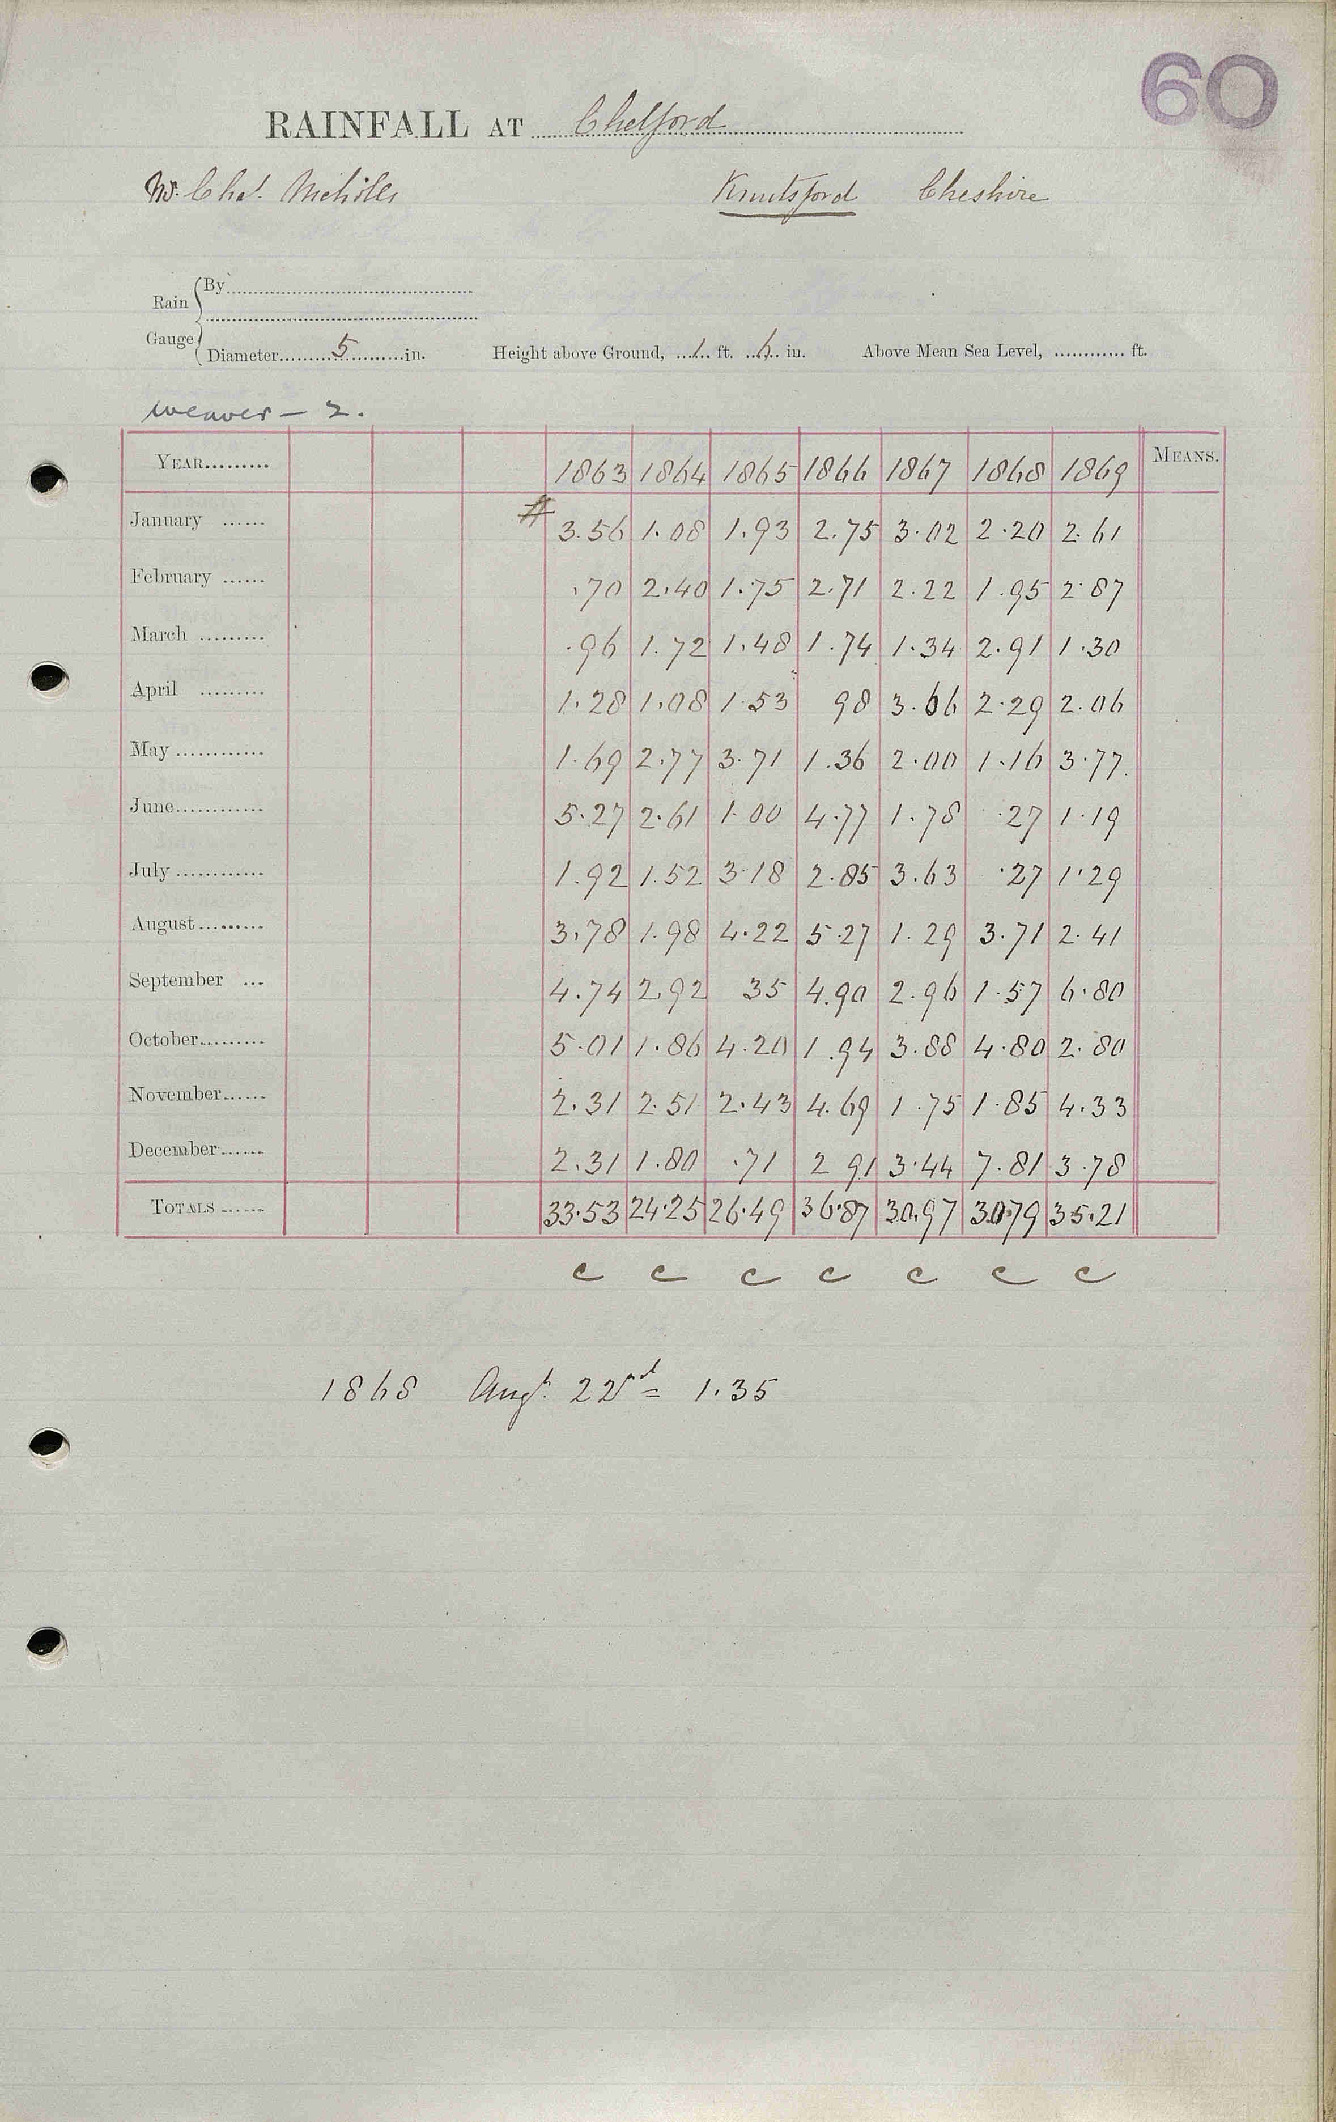 60
RAINFALL AT Chelford
Mr. Chas. Nicholls Knutsford Cheshire
Rain Gauge { By
Diameter 5 in. Height above Ground, 1 ft. 6 in. Above Mean Sea Level, ft.
weaver - 2.
YEAR 1863 1864 1865 1866 1867 1868 1869 MEANS.
January # 3.56 1.08 1.93 2.75 3.02 2.20 2.61
February .70 2.40 1.75 2.71 2.22 1.95 2.87
March .96 1.72 1.48 1.74 1.34 2.91 1.30
April 1.28 1.08 1.53 98 3.66 2.29 2.06
May 1.69 2.77 3.71 1.36 2.00 1.16 3.77
June 5.27 2.61 1.00 4.77 1.78 .27 1.19
July 1.92 1.52 3.18 2.85 3.63 .27 1.29
August 3.78 1.98 4.22 5.27 1.29 3.71 2.41
September 4.74 2.92 35 4.90 2.96 1.57 6.80
October 5.01 1.86 4.20 1.94 3.88 4.80 2.80
November 2.31 2.51 2.43 4.69 1.75 1.85 4.33
December 2.31 1.80 .71 2 91 3.44 7.81 3.78
TOTALS 33.53 24.25 26.49 36.87 30.97 30.79 35.21
c c c c c c c
1868 Augt. 22nd = 1.35